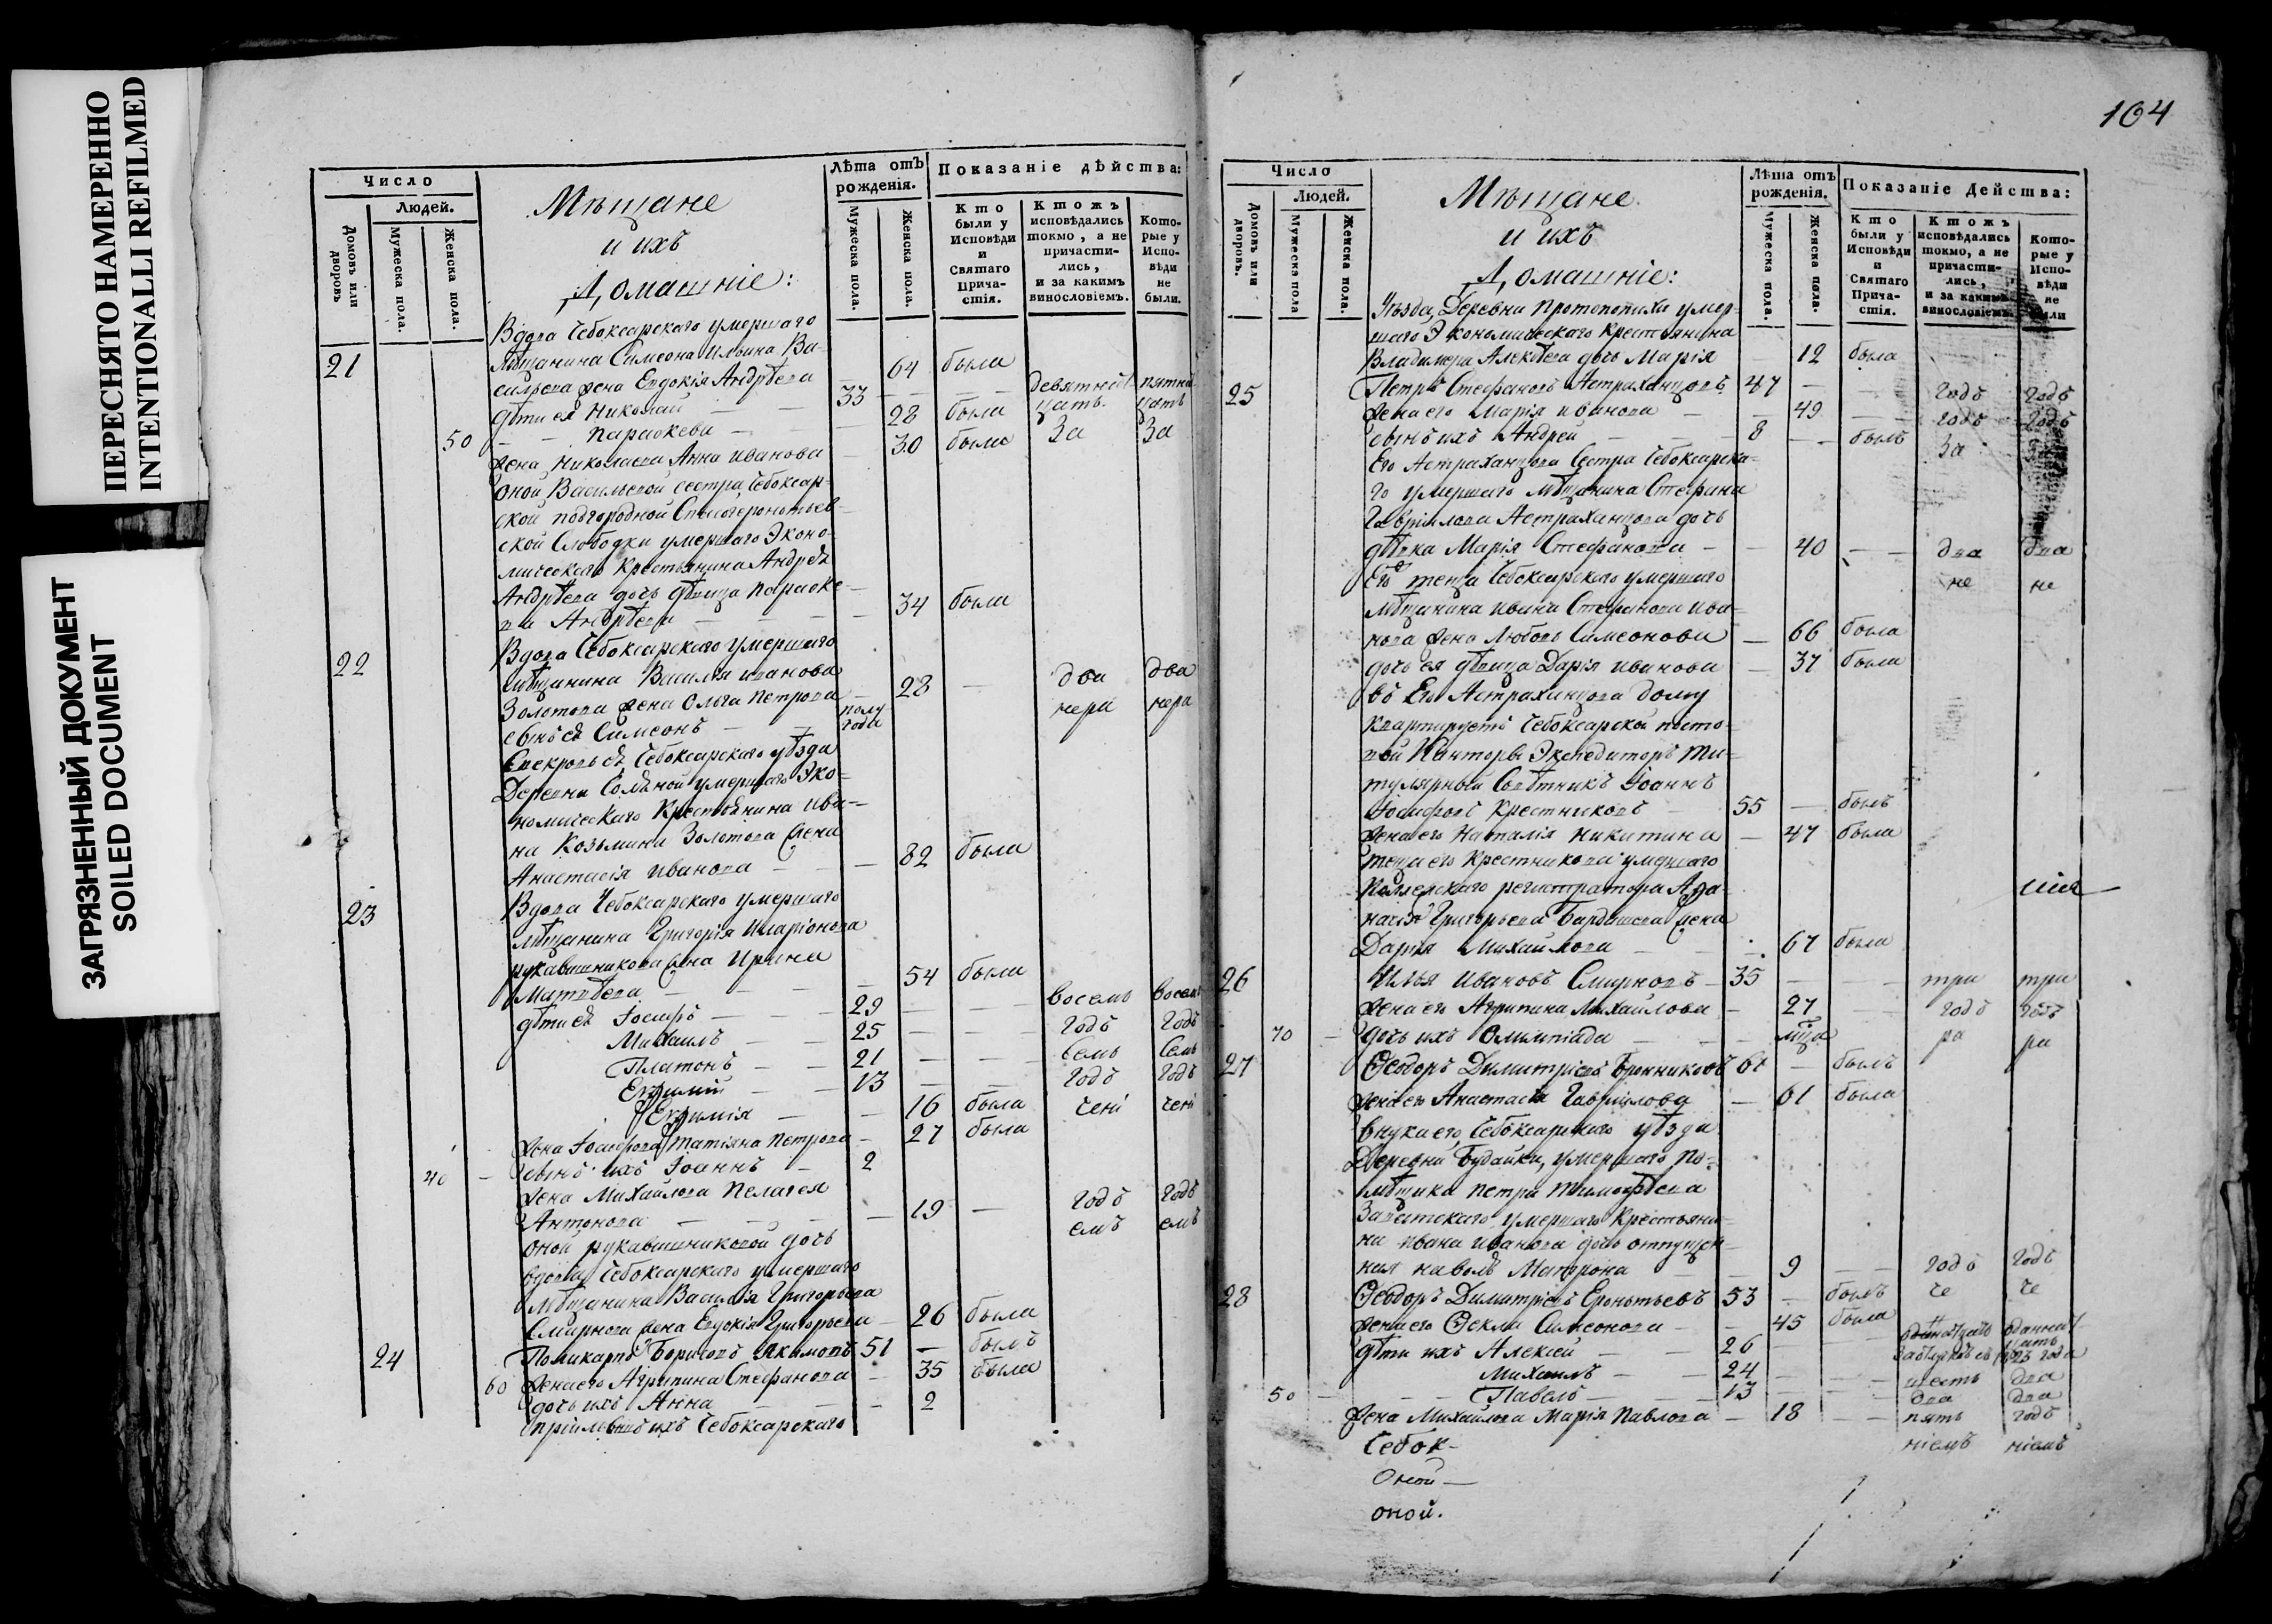 ПЕРЕСНЯТО НАМЕРЕННО
INTENTIONALLI REFILMED
ЗАГРЯЗНЕННЫЙ ДОКУМЕНТ
SOILED DOCUMENT
Число
Людей.
Домовъ или дворовъ
Мужеска пола.
Женска пола.
Мѣщане
и ихъ
Домашніе:
Лѣта отъ рожденія.
Мужеска пола.
Женска пола.
Показаніе дѣйства:
Кто были у Исповѣди и Святаго Прича-стія.
Ктожъ исповѣдались токмо, а не причасти-лись, и за какимъ винословіемъ.
Кото-рые у Испо-вѣди не были.
Вдова Чебоксарскаго умершаго
21 мѣщанина Симеона Ильина Ва-
сильева жена Евдокія Андрѣева 64 была
дѣти ея Николай 33 девятнад пятнад
50 Параскева 28 была цать. цать
жена Николаева Анна Иванова 30 была За За
оной Васильевой сестра, Чебоксар-
ской подгородной Спасогеронтьев-
ской Слободки умершаго Эконо-
мическаго Крестьянина Андрея
Андрѣева дочь дѣвица Параске-
ва Андрѣева 34 была
22 Вдова Чебоксарскаго умершаго
мѣщанина Василія Иванова
Золотова жена Ольга Петрова 28 два два
сынъ ея Симеонъ полу года нера нера
Свекровь ея, Чебоксарскаго уѣзда
Деревни умершаго Эко-
номическаго Крестьянина Ива-
на Козьмина Золотова жена
Анастасія Иванова 82 была
23 Вдова Чебоксарскаго умершаго
мѣщанина Григорія Иларіонова
рукавишникова жена Ирина
Матвѣева 54 была
дѣти ея Іосифъ 29 восемь восемь
Михаилъ 25 годъ годъ
Платонъ 21 семь семь
Евфимій 13 годъ годъ
Евфимія 16 была чені чені
жена Іосифова Татіана Петрова 27 была
40 сынъ ихъ Іоаннъ 2
жена Михайлова Пелагея
Антонова 19 годъ годъ
оной рукавишниковой дочь емъ емъ
вдова, Чебоксарскаго умершаго
мѣщанина Василія Григорьева
Смирнова жена Евдокія Григорьева 26 была
24 Поликарпъ Борисовъ Якимовъ 51 былъ
60 жена его Агрипина Стефанова 35 была
дочь ихъ Анна 2
ихъ Чебоксарскаго
104
Число
Людей.
Домовъ или дворовъ.
Мужеска пола
Женска пола.
Мѣщане
и ихъ
Домашніе:
Лѣта отъ рожденія.
Мужеска пола.
Женска пола.
Показаніе Действа:
Кто были у Исповѣди и Святаго Прича-стія.
Ктожъ исповѣдались токмо, а не причасти-лись, и за какимъ винословіемъ.
Кото-рые у Испо-вѣди не были
Уѣзда, Деревни Протопопиха умер-
шаго Экономическаго Крестьянина
Владимера Алексѣева дочь Марія 12 была
25 Петръ Стефановъ Астраханцовъ 47 годъ годъ
жена его Марія Иванова 49 годъ годъ
сынъ ихъ Андрей 8 былъ За
Его Астраханцова Сестра Чебоксарска-
го умершаго мѣщанина Стефана
Гаврилова Астраханцова дочь
дѣвка Марія Стефанова 40 два два
Его теща Чебоксарскаго умершаго не не
мѣщанина Ивана Стефанова Ива-
нова жена Любовь Симеонова 66 была
дочь ея дѣвица Дарія Иванова 37 была
въ Его Астраханцова дому
квартируетъ Чебоксарской почто-
вой Канторы Экспедиторъ Ти-
тулярный Совѣтникъ Іоаннъ
Іосифовъ Крестниковъ 55 былъ
жена его Наталія Никитина 47 была
теща его Крестникова умершаго
Коллежскаго регистратора
Григорьева жена
Дарія Михайлова 67 была
26 Илья Ивановъ Смирновъ 35 три три
жена его Агрипина Михайлова 27 годъ годъ
70 дочь ихъ Олимпіада мца ра ра
27 Ѳеодоръ Димитріевъ Бронниковъ 61 былъ
жена его Анастасія Гаврилова 61 была
внука его, Чебоксарскаго уѣзда
Деревни Будайки, умершаго По-
мѣщика Петра Тимофѣева
умершаго Крестьяни-
на Ивана Иванова дочь отпущен-
ная на волѣ Матрона 9 годъ годъ
28 Ѳеодоръ Димитріевъ Еронтьевъ 53 былъ че че
жена его Ѳекла Симеонова 45 была
дѣти ихъ Алексей 26
Михаилъ 24 шесть два
50 Павелъ 13 два два
жена Михайлова Марія Павлова 18 пять годъ
Чебок- ніемъ ніемъ
Оной
оной.